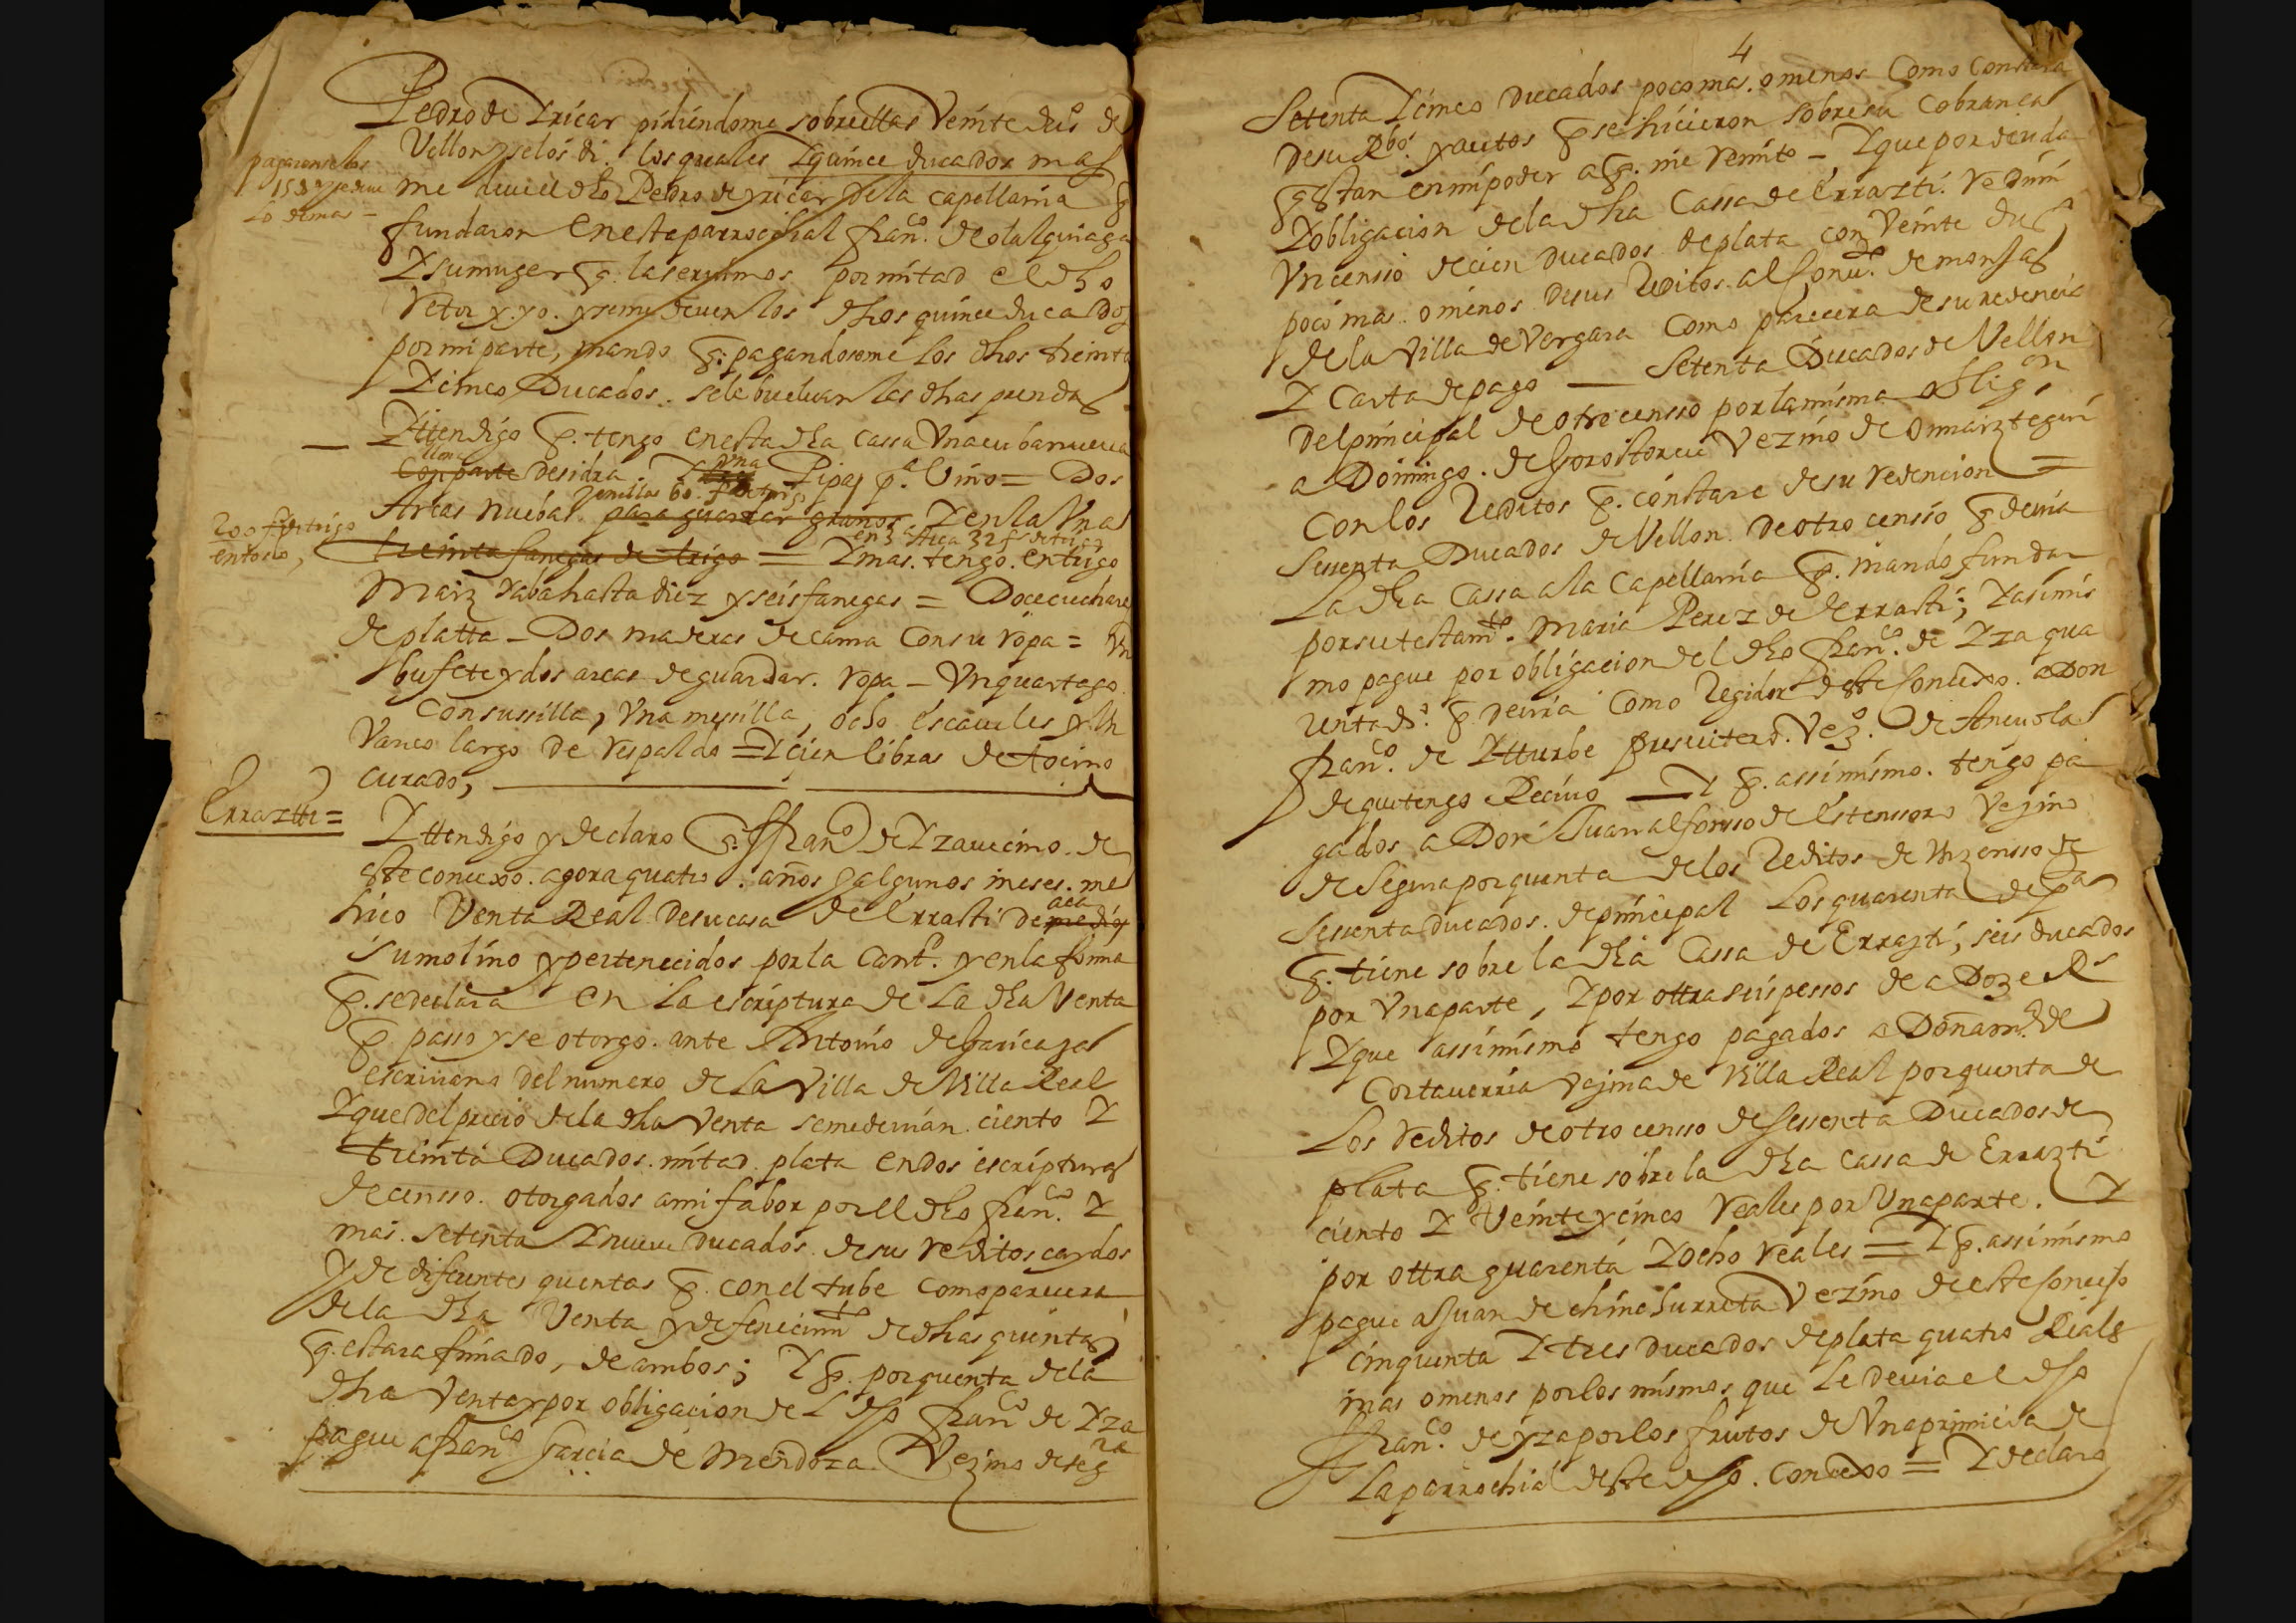 Pedro de Yricar pidiendome sobre ellas Veinte du.os de
Vellon y selos di. los quales Y quince ducados mas
me deue el dho Pedro de yricar de la capellania q
fundaron En esta parrochial fran.co de olalquiaga
Y su muger q. la seruimos por mitad el dho
Retor y. yo. y seme deuen los dhos quince ducados
por mi parte, mando q. pagandoseme los dhos treinta
Y cinco Ducados. se le bueluan las dhas prendas
pagaronse los
lo demas -
— Ytten digo q. tengo en esta dha cassa Vna cuba nueua
llena
con parte de sidra Y una Pipa p.a Vino = Dos
Arcas nuebas para guardar granos. Y en la Vna
200 f. de trigo
en todo,
treinta fanegas de trigo = Y mas. tengo. en trigo
Maiz Y aba hasta diez y seis fanegas = Doce cuchares
de platta - Dos maderas de cama con su ropa = Vn
bufete y dos arcas de guardar. ropa - Vn quartago
Con su silla, Vna mesilla, ocho escaueles y Vn
Vanco largo de respaldo = Y cien libras de tocino
curado,
Errazti =
Ytten digo y declaro q. ffran.co de Yza vecino. de
este concexo. agora quatro. años y algunos meses. me
hico Venta Real de su casa de Errasti de medio
aca
su molino y pertenecidos por la cant.d y en la forma
q. se declara en la escriptura de la dha Venta
q passo y se otorgo. ante Antonio de Garicaza
escriuano del numero de la Villa de Villa Real
Y que del precio de la dha Venta se me deuian. ciento Y
treinta Ducados. mitad plata en dos escripturas
de censso. otorgados a mi fabor por el dho fran.co Y
mas. setenta Y nueue ducados. de sus reditos caydos
Y de diferentes quentas q. con el tube como parecera
de la dha Venta y de fenecim.to de dhas quentas
q. estara firmado, de ambos; Y q. por quenta de la
dha Venta y por obligacion del dho fran.co de Yza
pague a fran.co Garcia de Mendoza Vezino de seg.ra
4
Setenta Y cinco Ducados poco mas. o menos Como Constara
de su Rbo. y autos q se hicieron sobre su cobranca
q estan en mi poder a q. me remito - Y que por deuda
Y obligacion de la dha Cassa de Errazti. redimi
Vn censso de cien Ducados de plata con Veinte du.s
poco mas. o menos. de sus Reditos. al Conu.to de monjas
de la Villa de Vergara Como parecera de su redencion
Y Carta de pago — Setenta Ducados de Vellon
del principal de otro censso por la misma oblig.on
a Domingo. de Gorostorcu Vezino de Onnarztegui
Con los Reditos q. constare de su redencion =
Sesenta Ducados de Vellon. De otro censso q deuia
La dha Cassa a la Capellania q. mando fundar
por su testam.to Maria Perez de Errasti; Y asimis
mo pague por obligacion del dho fran.co de Yza qua
renta d.s q. deuia Como Regidor de este Concexo. a Don
fran.co de Ytturbe presuitero. Vez.o de Anuola
de que tengo Reciuo — Y q. assimismo. tengo pa
gados a Don Juan alfonsso de Estenssoro Vezino
de Segura por quenta de los Reditos de Vn zensso de
Sesenta ducados. de principal Los quarenta de p.ta
q. tiene sobre la dha Cassa de Errazti, seis ducados
por Vna parte, Y por ottra seis pessos de a Doze Rs
Y que assimismo tengo pagados a Doña m.a de
Cortauerria Vezina de Villa Real por quenta de
Los reditos de otro censso de sesenta Ducados de
plata q. tiene sobre la dha cassa de Errazti
ciento Y Veinte y cinco reales por Vna parte. Y
por ottra quarenta Y ocho reales = Y q. assimismo
pague a Juan de chinchurreta Vezino de este Concejo
cinquenta Y tres Ducados de plata quatro Reales
mas o menos por los mismos que Le deuia el dho
fran.co de yza por los frutos de Vna primicia de
La parrochial deste dho. Concexo = Y declaro